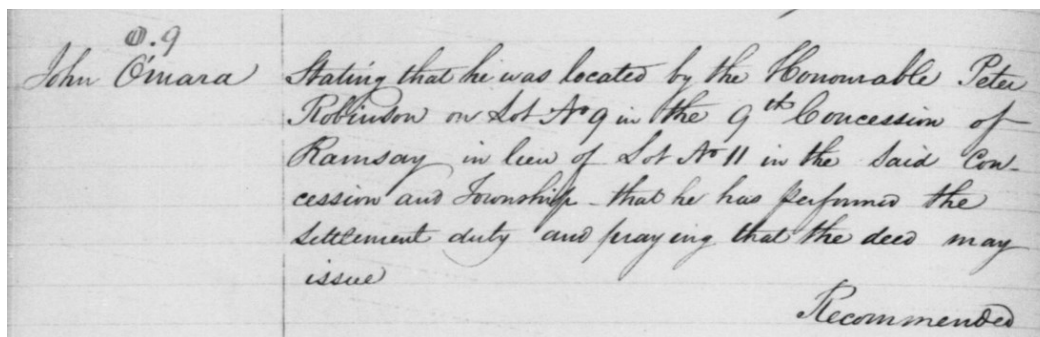 O.9
John O'mara
Stating that he was located by the Honourable Peter
Robinson on Lot No 9 in the 9th Concession of
Ramsay in lieu of Lot No 11 in the said Con-
cession and Township - that he has performed the
settlement duty and praying that the deed may
issue
Recommended